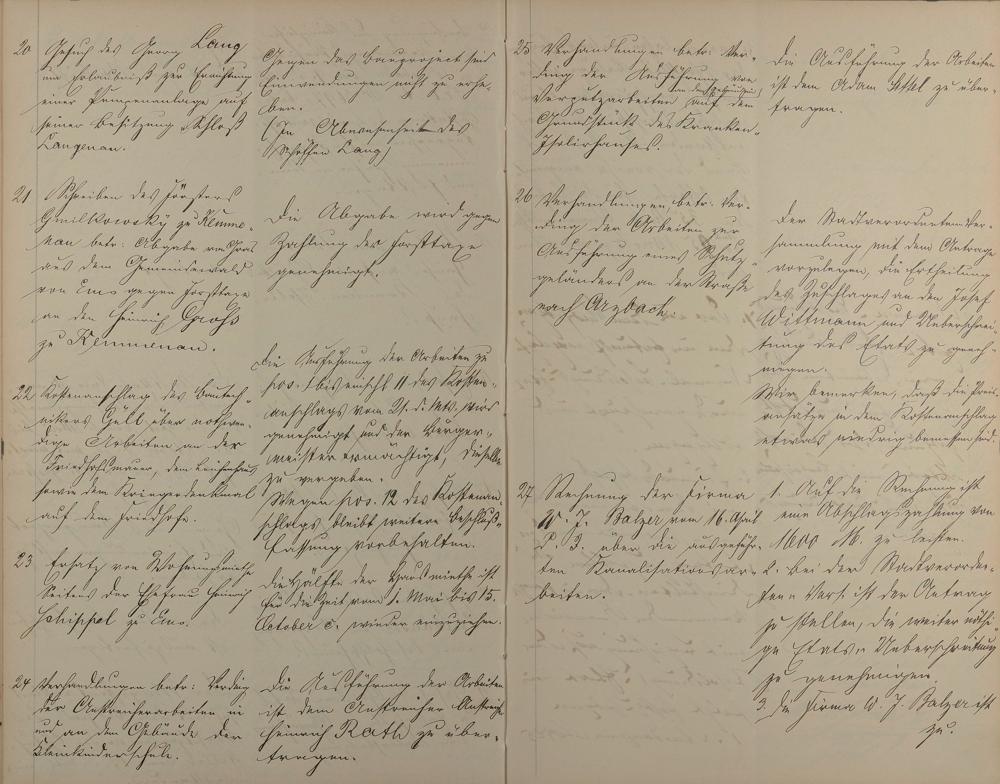 20 Gesuch des Georg Lang
um Erlaubniß zur Errichtung
einer Pumpenanlage auf
seiner Besitzung Schloß
Langenau.
Gegen das Bauproject sind
Einwendungen nicht zu erhe-
ben.
(In Abwesenheit des
Schöffen Lang)
21 Schreiben des Försters
Gmilkowsky zu Kemme-
nau betr: Abgabe von Gras
aus dem Gemeindewald
von Ems gegen Forsttaxe
an den Heinrich Groß
zu Kemmenau.
Die Abgabe wird gegen
Zahlung der Forsttaxe
genehmigt.
22 Kostenanschlag des Bautech-
nikers Güll über nothwen-
dige Arbeiten an der
Friedhofsmauer, dem Leichenhaus
sowie dem Kriegerdenkmal
auf dem Friedhofe.
Die Ausführung der Arbeiten zu
pos. 1 bis einschl. 11 des Kosten-
anschlags vom 21. d. Mts. wird
genehmigt und der Bürger-
meister ermächtigt, dieselben
zu vergeben.
Wegen pos. 12 des Kostenan-
schlags bleibt weitere Beschluß-
fassung vorbehalten.
23 Ersatz von Wohnungsmiethe
Seitens der Ehefrau Heinrich
zu Ems.
Die Hälfte der Hausmiethe ist
für die Zeit vom 1. Mai bis 15.
October c. wieder einzuziehen.
24 Verhandlungen betr: Verding
der Anstreicherarbeiten in
und an dem Gebäude der
Kleinkinderschule.
Die Ausführung der Arbeiten
ist dem Anstreicher
Heinrich Rath zu über-
tragen.
25 Verhandlungen betr: Ver-
ding der Ausführung von
Verputzarbeiten auf dem
Grundstück des Kranken-
Isolirhauses.
Die Ausführung der Arbeiten
ist dem Adam zu über-
tragen.
26 Verhandlungen, betr: Ver-
ding der Arbeiten zur
Ausführung eines Schutz-
geländers an der Straße
nach Arzbach.
Der Stadtverordneten-Ver-
sammlung mit dem Antrage
vorzulegen, die Ertheilung
des Zuschlages an den Josef
Wittmann und Ueberschrei-
tung des Etats zu geneh-
migen.
Wir bemerken, daß die Preis-
ansätze in dem Kostenanschlag
etwas niedrig bemessen sind.
27 Rechnung der Firma
W. J. Balzer vom 16. April
d. J. über die ausgeführ-
ten Kanalisationsar-
beiten.
1. Auf die Rechnung ist
eine Abschlagszahlung von
1600 M. zu leisten.
2. Bei der Stadtverordne-
ten-Vers. ist der Antrag
zu stellen, die weiter nöthi-
ge Etats-Ueberschreitung
zu genehmigen.
3. Die Firma W. J. Balzer ist
zu.